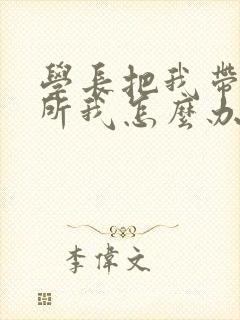 學長把我帶
所我怎麼办
李偉文